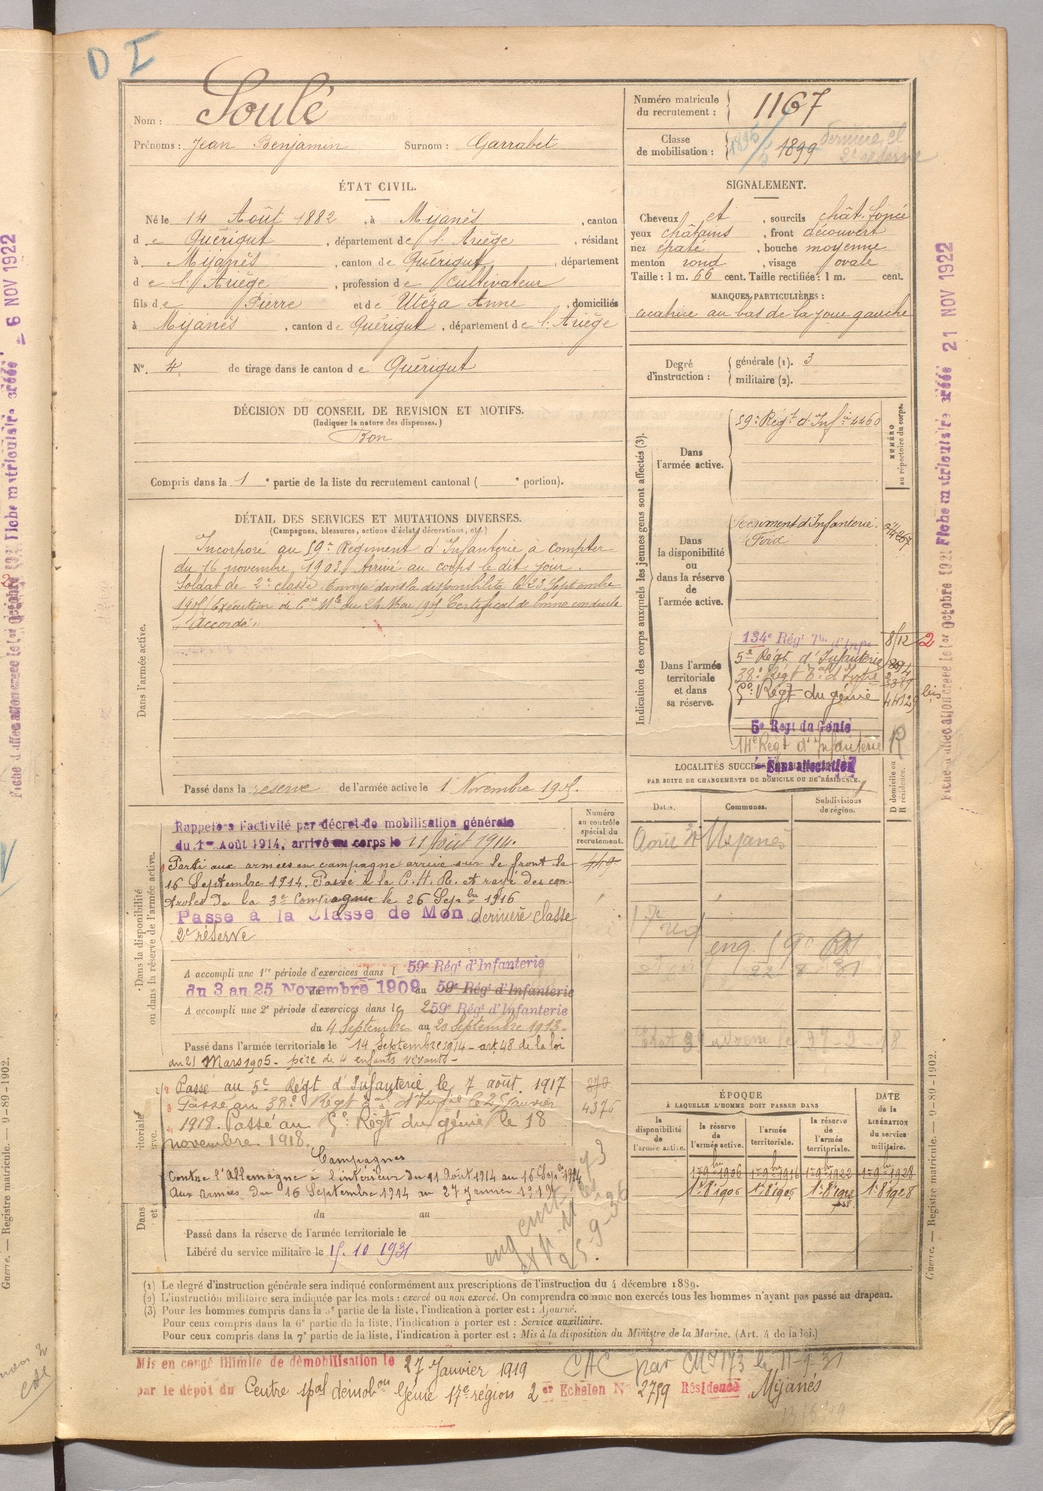 D I
Nom : Soulé
Prénoms : Jean Benjamin Surnom : Garrabet
Numéro matricule du recrutement : 1167
Classe de mobilisation : 1896 1899 dernière cl 2e réserve
ÉTAT CIVIL.
Né le 14 Août 1882, à Mijanès, canton
de Quérigut, département de l'Ariège, résidant
à Mijanès, canton de Quérigut, département
de l'Ariège, profession de Cultivateur
fils de Pierre et de Utéza Anne, domiciliés
à Mijanès, canton de Quérigut, département de l'Ariège
N° 4 de tirage dans le canton de Quérigut
SIGNALEMENT.
Cheveux et, sourcils chât. foncé
yeux châtains, front découvert
nez épaté, bouche moyenne
menton rond, visage ovale
Taille : 1 m. 66 cent. Taille rectifiée : 1 m. cent.
MARQUES PARTICULIÈRES :
cicatrice au bas de la joue gauche
Degré d'instruction : générale (1). 3
militaire (2).
DÉCISION DU CONSEIL DE REVISION ET MOTIFS.
(Indiquer la nature des dispenses.)
Bon
Compris dans la 1e partie de la liste du recrutement cantonal ( e portion).
DÉTAIL DES SERVICES ET MUTATIONS DIVERSES.
(Campagnes, blessures, actions d'éclat, décorations, etc.)
Dans l'armée active.
Incorporé au 59e Régiment d'Infanterie à compter
du 16 novembre 1903. Arrivé au corps le dit jour.
Soldat de 2e classe. Envoyé dans la disponibilité le 23 Septembre
1905. Exécution de la Cre Mlle du 24 Mai 1905. Certificat de bonne conduite
"Accordé"
Passé dans la réserve de l'armée active le 1 Novembre 1905.
Indication des corps auxquels les jeunes gens sont affectés (3).
NUMÉRO au répertoire du corps.
Dans l'armée active.
59e Régt d'Infie 4460
Dans la disponibilité ou dans la réserve de l'armée active.
Recrument d'Infanterie.
Foix
Dans l'armée territoriale et dans sa réserve.
134e Régt Tal d'Infie 8/12 2
5e Régt d'Infanterie
38e Régt Tal d'Infie
5e Régt du génie 44129 bis
5e Régt du Génie
14e Régt d'Infanterie R
Sans affectation
LOCALITÉS SUCC
PAR SUITE DE CHANGEMENTS DE DOMICILE OU DE RÉSIDENCE.
D domicile ou R résidence.
Dates. Communes. Subdivisions de région.
Août Mijanès
Dans la disponibilité ou dans la réserve de l'armée active.
Numéro au contrôle spécial du recrutement.
449
Rappelé à l'activité par décret de mobilisation générale
du 1er Août 1914, arrivé au corps le 11 Août 1914.
Parti aux armées en campagne arrivé sur le front le
16 Septembre 1914. Passé à le C.H.R. et rayé des con-
trôles de la 3e Compagnie le 26 Sepbre 1916
Passé à la Classe de Mon dernière classe
2e réserve
A accompli une 1re période d'exercices dans l 59e Régt d'Infanterie
du 3 au 25 Novembre 1909 au 59e Régt d'Infanterie
A accompli une 2e période d'exercices dans le 259e Régt d'Infanterie
du 4 Septembre au 20 Septembre 1913.
Passé dans l'armée territoriale le 14 Septembre 1914 - art 48 de la loi
du 21 Mars 1905 - père de 4 enfants vivants -
Passé au 5e Régt d'Infanterie le 7 août 1917
Passé au 38e Régt Tal d'Infie le 25 Janvier
1918. Passé au 5e Régt du génie le 18
novembre 1918.
4376
Campagnes
Contre l'Allemagne à l'intérieur du 11 Août 1914 au 15 Sepbre 1914
Aux Armées du 16 Septembre 1914 au 27 Janvier 1919
du au
Passé dans la réserve de l'armée territoriale le
Libéré du service militaire le 15.10 1931
ÉPOQUE
À LAQUELLE L'HOMME DOIT PASSER DANS
DATE de la LIBÉRATION du service militaire.
la disponibilité de l'armée active.
la réserve de l'armée active.
l'armée territoriale.
la réserve de l'armée territoriale.
1er 9bre 1906 1er 9bre 1916 1er 9bre 1922 1er 9bre 1928
1er 8bre 1928
(1) Le degré d'instruction générale sera indiqué conformément aux prescriptions de l'instruction du 4 décembre 1889.
(2) L'instruction militaire sera indiquée par les mots : exercé ou non exercé. On comprendra comme non exercés tous les hommes n'ayant pas passé au drapeau.
(3) Pour les hommes compris dans la 5e partie de la liste, l'indication à porter est : Ajourné.
Pour ceux compris dans la 6e partie de la liste, l'indication à porter est : Service auxiliaire.
Pour ceux compris dans la 7e partie de la liste, l'indication à porter est : Mis à la disposition du Ministre de la Marine. (Art. 4 de la loi.)
Mis en congé illimité de démobilisation le 27 Janvier 1919
par le dépôt du Centre spal démobon Génie 17e région 2er Echelon N° 2759 Résidence Mijanès
CAC par
Guerre. — Registre matricule. — 9-89-1902.
Guerre. — Registre matricule. — 9-89-1902.
Fiche matriculaire créée 21 NOV 1922
Fiche d'affectation créée le 1er Octobre 192
Fiche matriculaire créée 6 NOV 1922
Fiche d'affectation créée le 1er Octobre 192